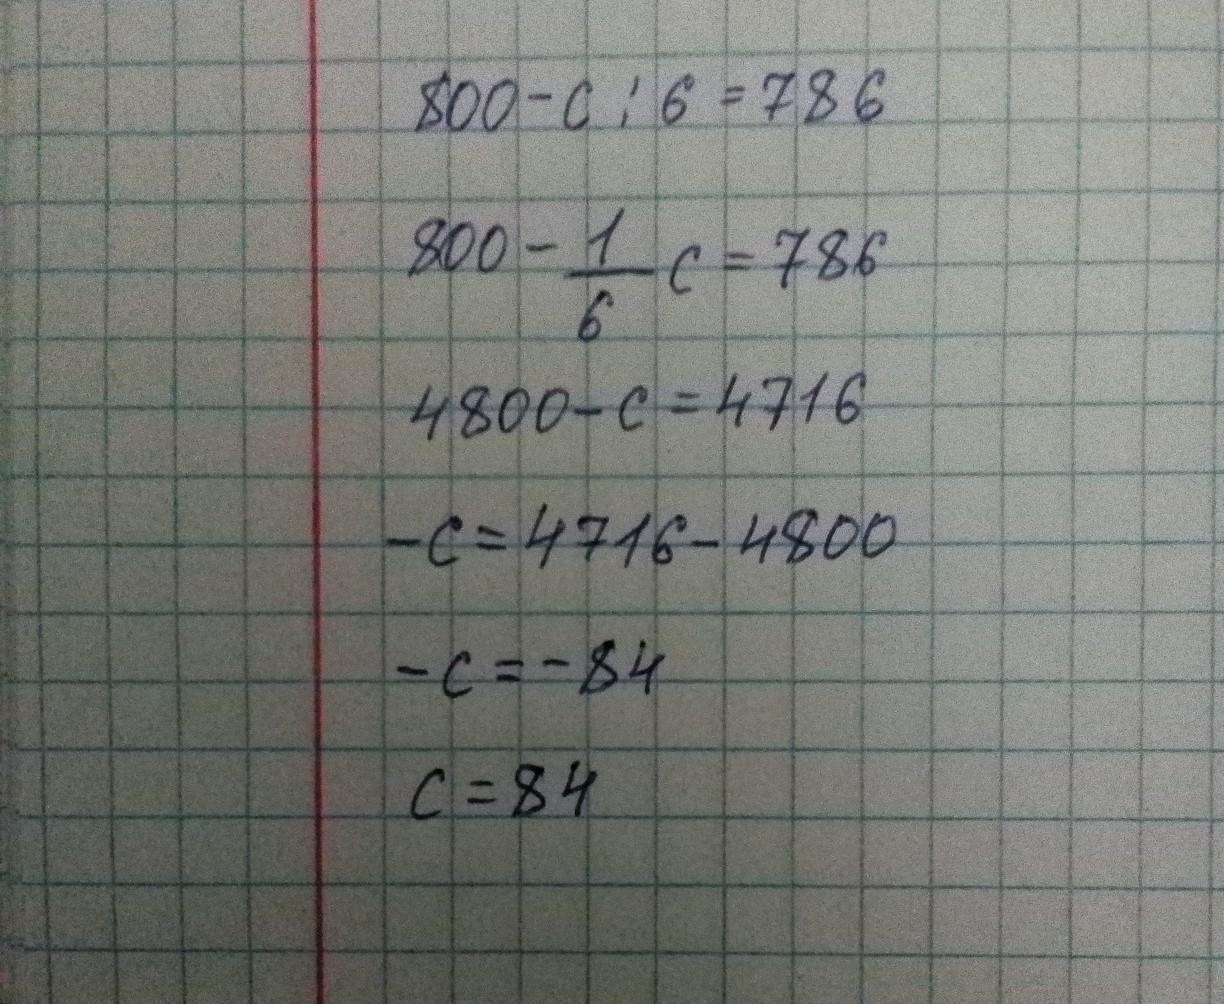 800-c:6=786
800-1/6 c=786
4800-c=4716
-c=4716-4800
-c=-84
c=84